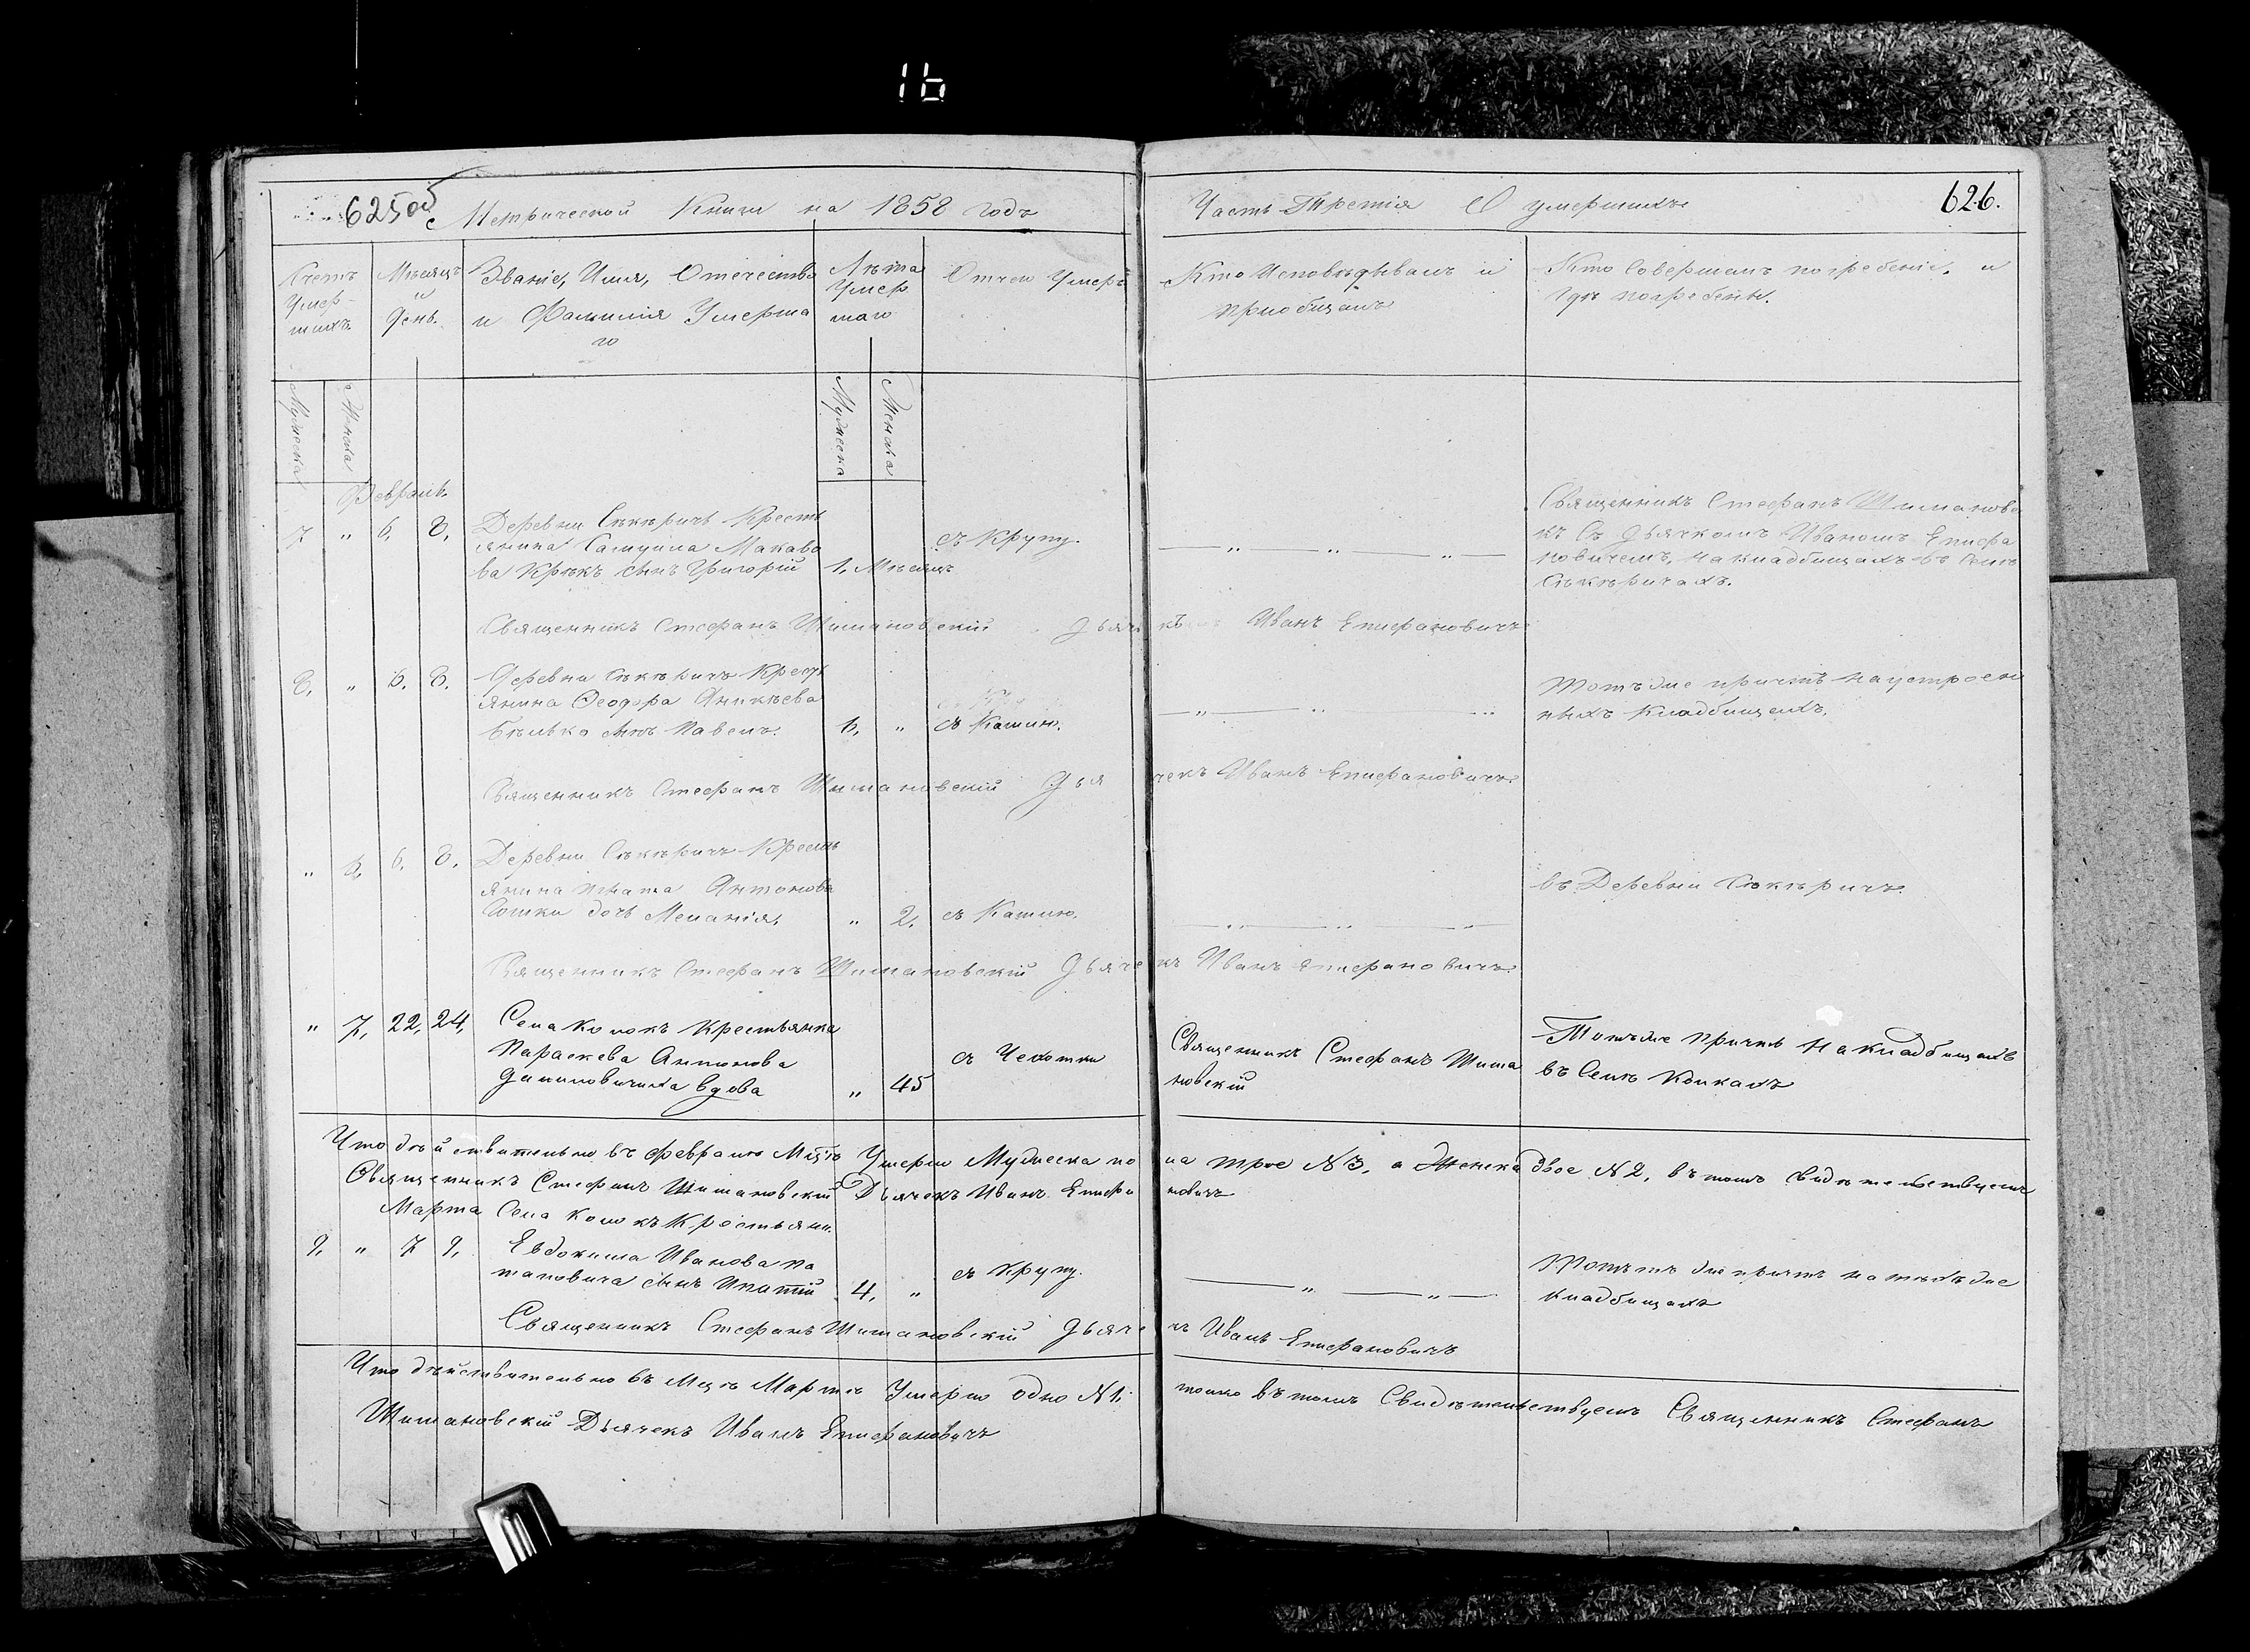 16
625 об Метрической Книги на 1858 годъ
Часть Третія О умершихъ
626.
Счетъ Умер-шихъ
Мѣсяцъ и День.
Званіе, Имя, Отечество и Фамилія Умершаго
Лѣта Умершаго
Отчего Умеръ
Кто Исповѣдывалъ и пріобщалъ
Кто Совершалъ погребеніе, и гдѣ погребены.
Мужеска
Женска
Мужеска
Женска
Февраль
7 " 6, 8, Деревни Сѣкѣричъ Кресть
янина Самуила Макаво
ва Крѣкъ сынъ Григорій 1, Мѣсяцъ
съ крупу.
Священникъ Стефанъ Шимановс
къ Съ Дьячкомъ Иваномъ Епифа
новичемъ, на кладбищахъ въ Селѣ
Сѣкѣричахъ.
Священникъ Стефанъ Шимановскій Дьячекъ Иванъ Епифановичъ
8, " 6, 8, Деревни Сѣкѣричъ Кресть
янина Ѳеодора Аникѣева
сынъ Павелъ. 6, " съ Кашлю.
Тотъже причтъ на устроен
ныхъ кладбищахъ.
Священникъ Стефанъ Шимановскій Дьячекъ Иванъ Епифановичъ
" 6, 6, 8, Деревни Сѣкѣричъ Кресть
янина Антонова
дочь Меланія, " 2, съ Кашлю.
въ Деревни Сѣкѣричъ.
Священникъ Стефанъ Шимановскій Дьячекъ Иванъ Епифановичъ
" 7, 22, 24, Села Колокъ Крестьянка
Параскева Антонова
Даниловичиха вдова " 45
съ Чехотки
Священникъ Стефанъ Шима
новскій
Тотъже Причтъ на кладбищахъ
въ Селѣ Колкахъ
Что дѣйствительно въ февралѣ Мцѣ Умерло Мужеска пола трое N 3, а Женска двое N 2, въ томъ свидѣтельствуемъ
Священникъ Стефанъ Шимановскій Дьячекъ Иванъ Епифановичъ
Марта Села Колокъ Крестьяни.
9, " 7 9, Евдокима Иванова По
таповича сынъ Ипатій 4, " съ крупу.
Тотътъ же причтъ на тѣхъ же
кладбищахъ
Священникъ Стефанъ Шимановскій Дьячекъ Иванъ Епифановичъ
Что дѣйствительно въ Мцѣ Мартѣ Умерло одно N 1. только въ томъ Свидѣтельствуемъ Священникъ Стефанъ
Шимановскій Дьячекъ Иванъ Епифановичъ